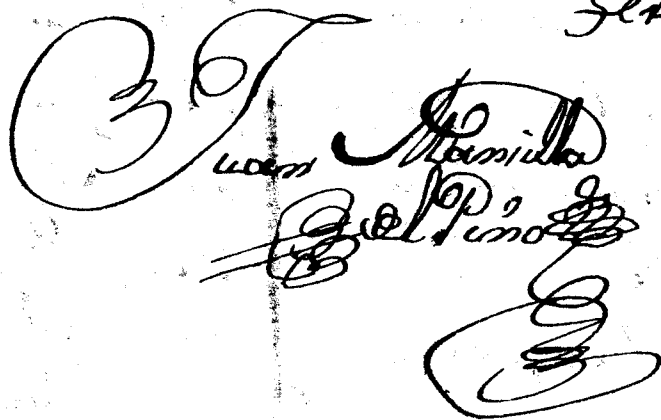 Juan Mansilla
del Pino